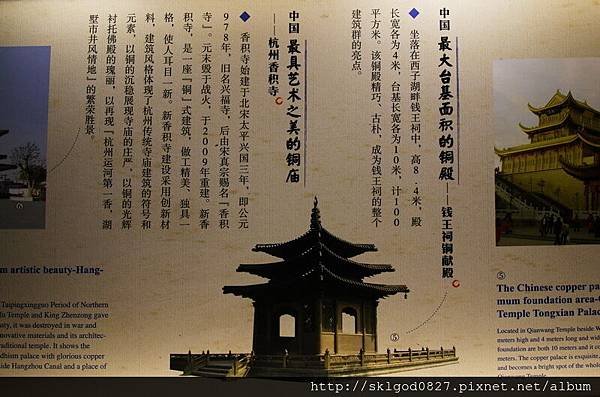 中国 最大台基面积的铜殿——钱王祠铜献殿
◆ 坐落在西子湖畔钱王祠中，高8·4米，殿
长宽各为4米，台基长宽各为10米，计100
平方米。该铜殿精巧、古朴，成为钱王祠的整个
建筑群的亮点。
中国 最具艺术之美的铜庙
——杭州香积寺
◆ 香积寺始建于北宋太平兴国三年，即公元
978年，旧名兴福寺，后由宋真宗赐名「香积
寺」。元末毁于战火，于2009年重建。新香
积寺，是一座「铜」式建筑，做工精美、独具一
格，使人耳目一新。新香积寺建设采用创新材
料，建筑风格体现了杭州传统寺庙建筑的符号和
元素，以铜的沉稳展现寺庙的庄严，以铜的光辉
衬托佛殿的瑰丽，以再现「杭州运河第一香，湖
墅市井风情地」的繁荣胜景。
⑥
⑤
m artistic beauty-Hang-
Taipingxingguo Period of Northern
fu Temple and King Zhenzong gave
sty, it was destroyed in war and
novative materials and its architec-
raditional temple. It shows the
dhism palace with glorious copper
side Hangzhou Canal and a place of
⑤
The Chinese copper pa
mum foundation area-
Temple Tongxian Palac
Located in Qianwang Temple beside W
meters high and 4 meters long and wid
foundation are both 10 meters and it co
meters. The copper palace is exquisite,
and becomes a bright spot of the whole
Qianwang Temple.
http://sklgod0827.pixnet.net/album